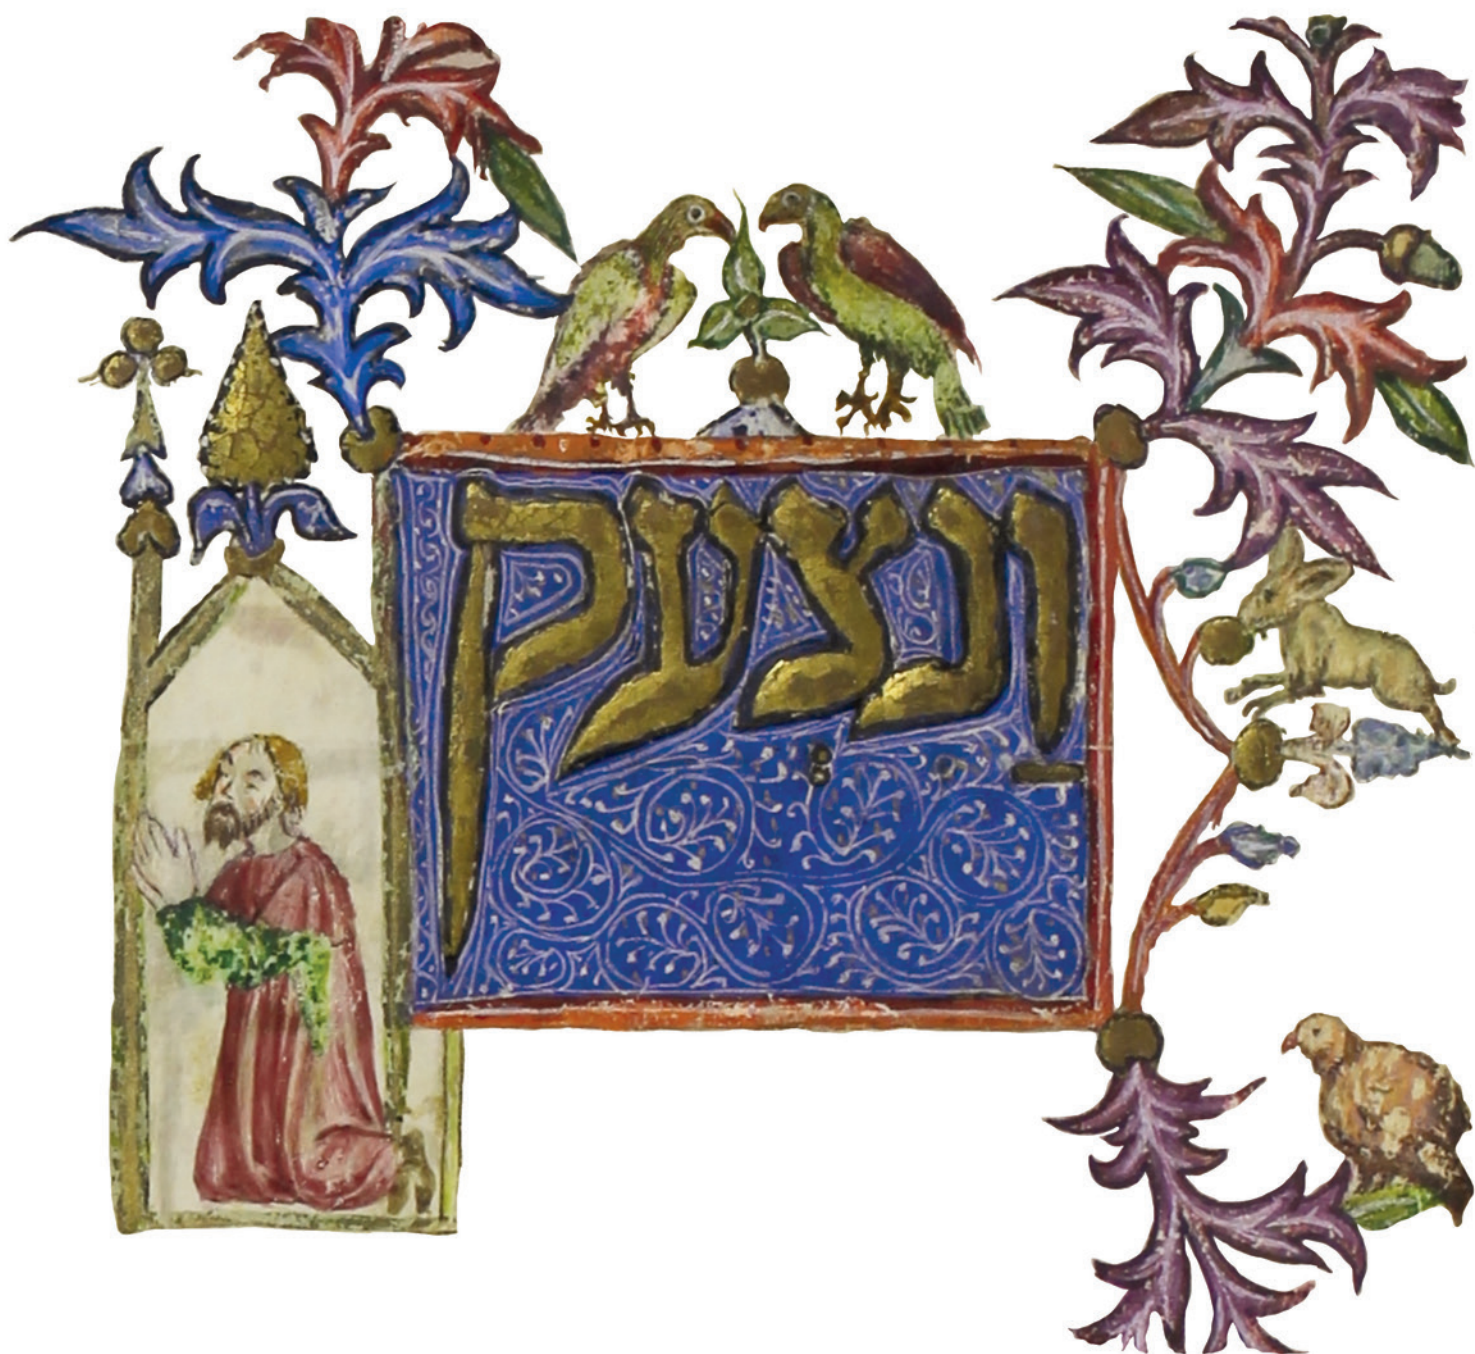 וַנצְעק